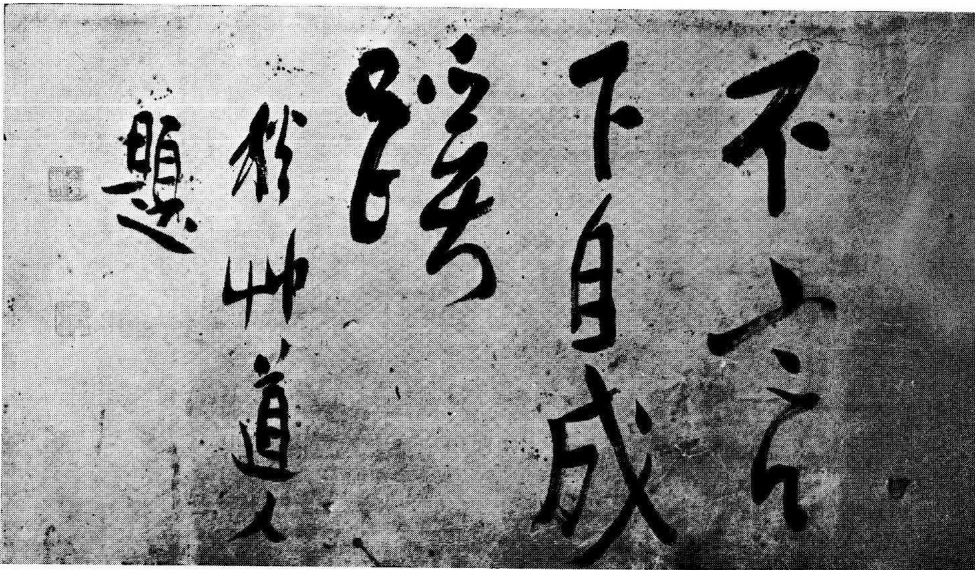 不言
下自成
蹊
秋艸道人
題